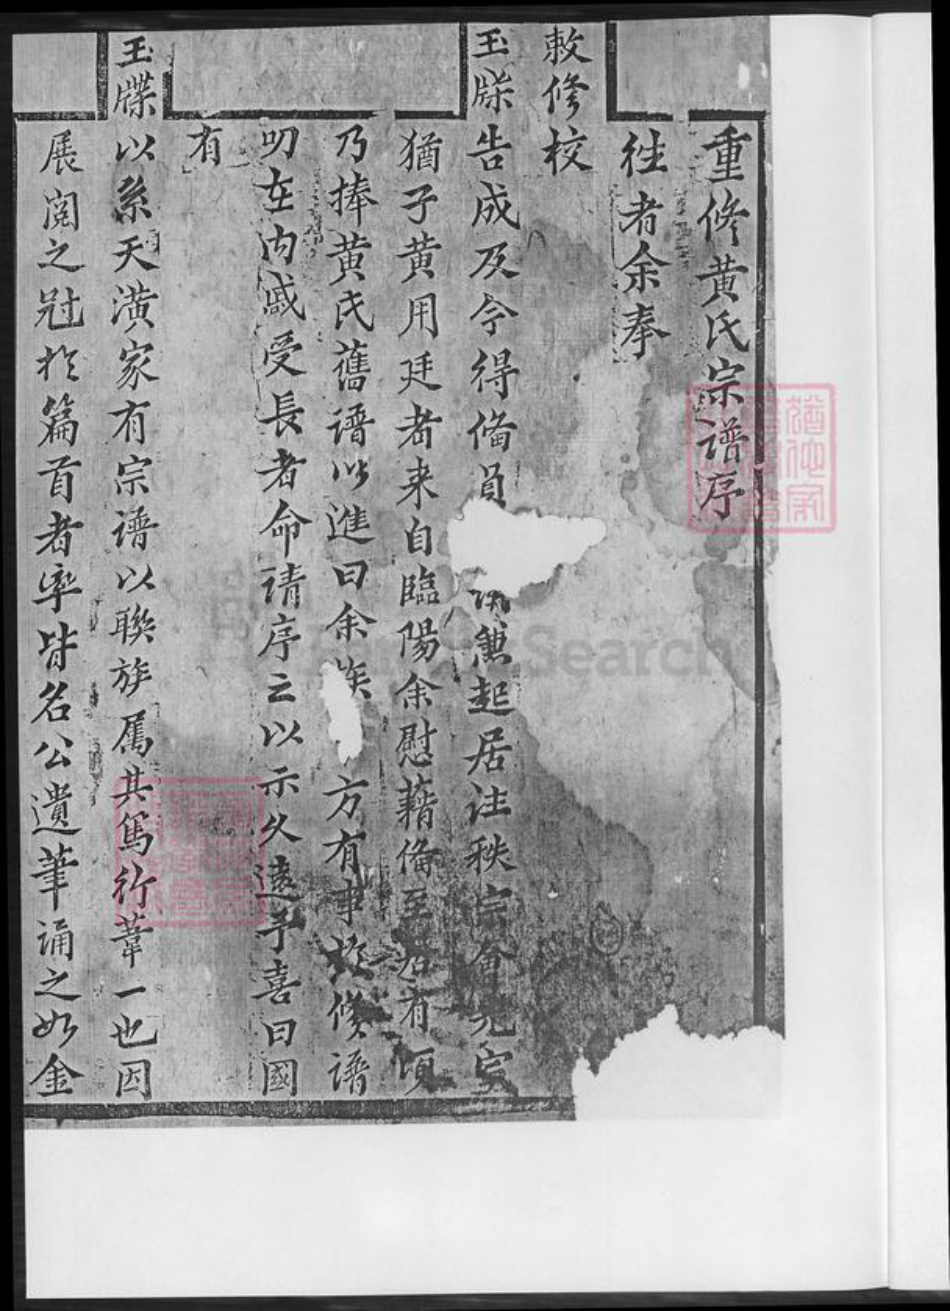 重修黄氏宗譜序
徃者余奉
敕修校
玉牒告成及今得俻員 兼起居注秩宗
猶子黄用廷者来自臨陽余慰藉俻至 有頃
乃捧黄氏舊譜以進曰余族 方有事於修譜
叨在内戚受長者命請序之以示久遠予喜曰國
有
玉牒以系天潢家有宗譜以聯族属其篤行葦一也因
展閲之冠於篇首者率皆名公遺筆誦之如金
Search